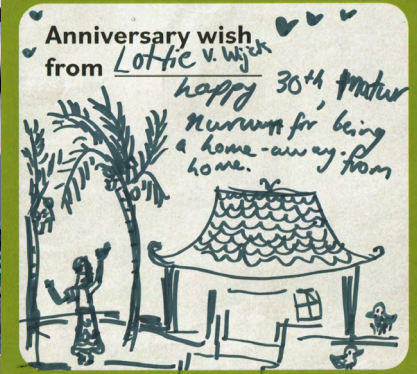 Anniversary wish
from Lottie v. Wijck
happy 30th, Matur
nuwun for being
a home-away-from
home.